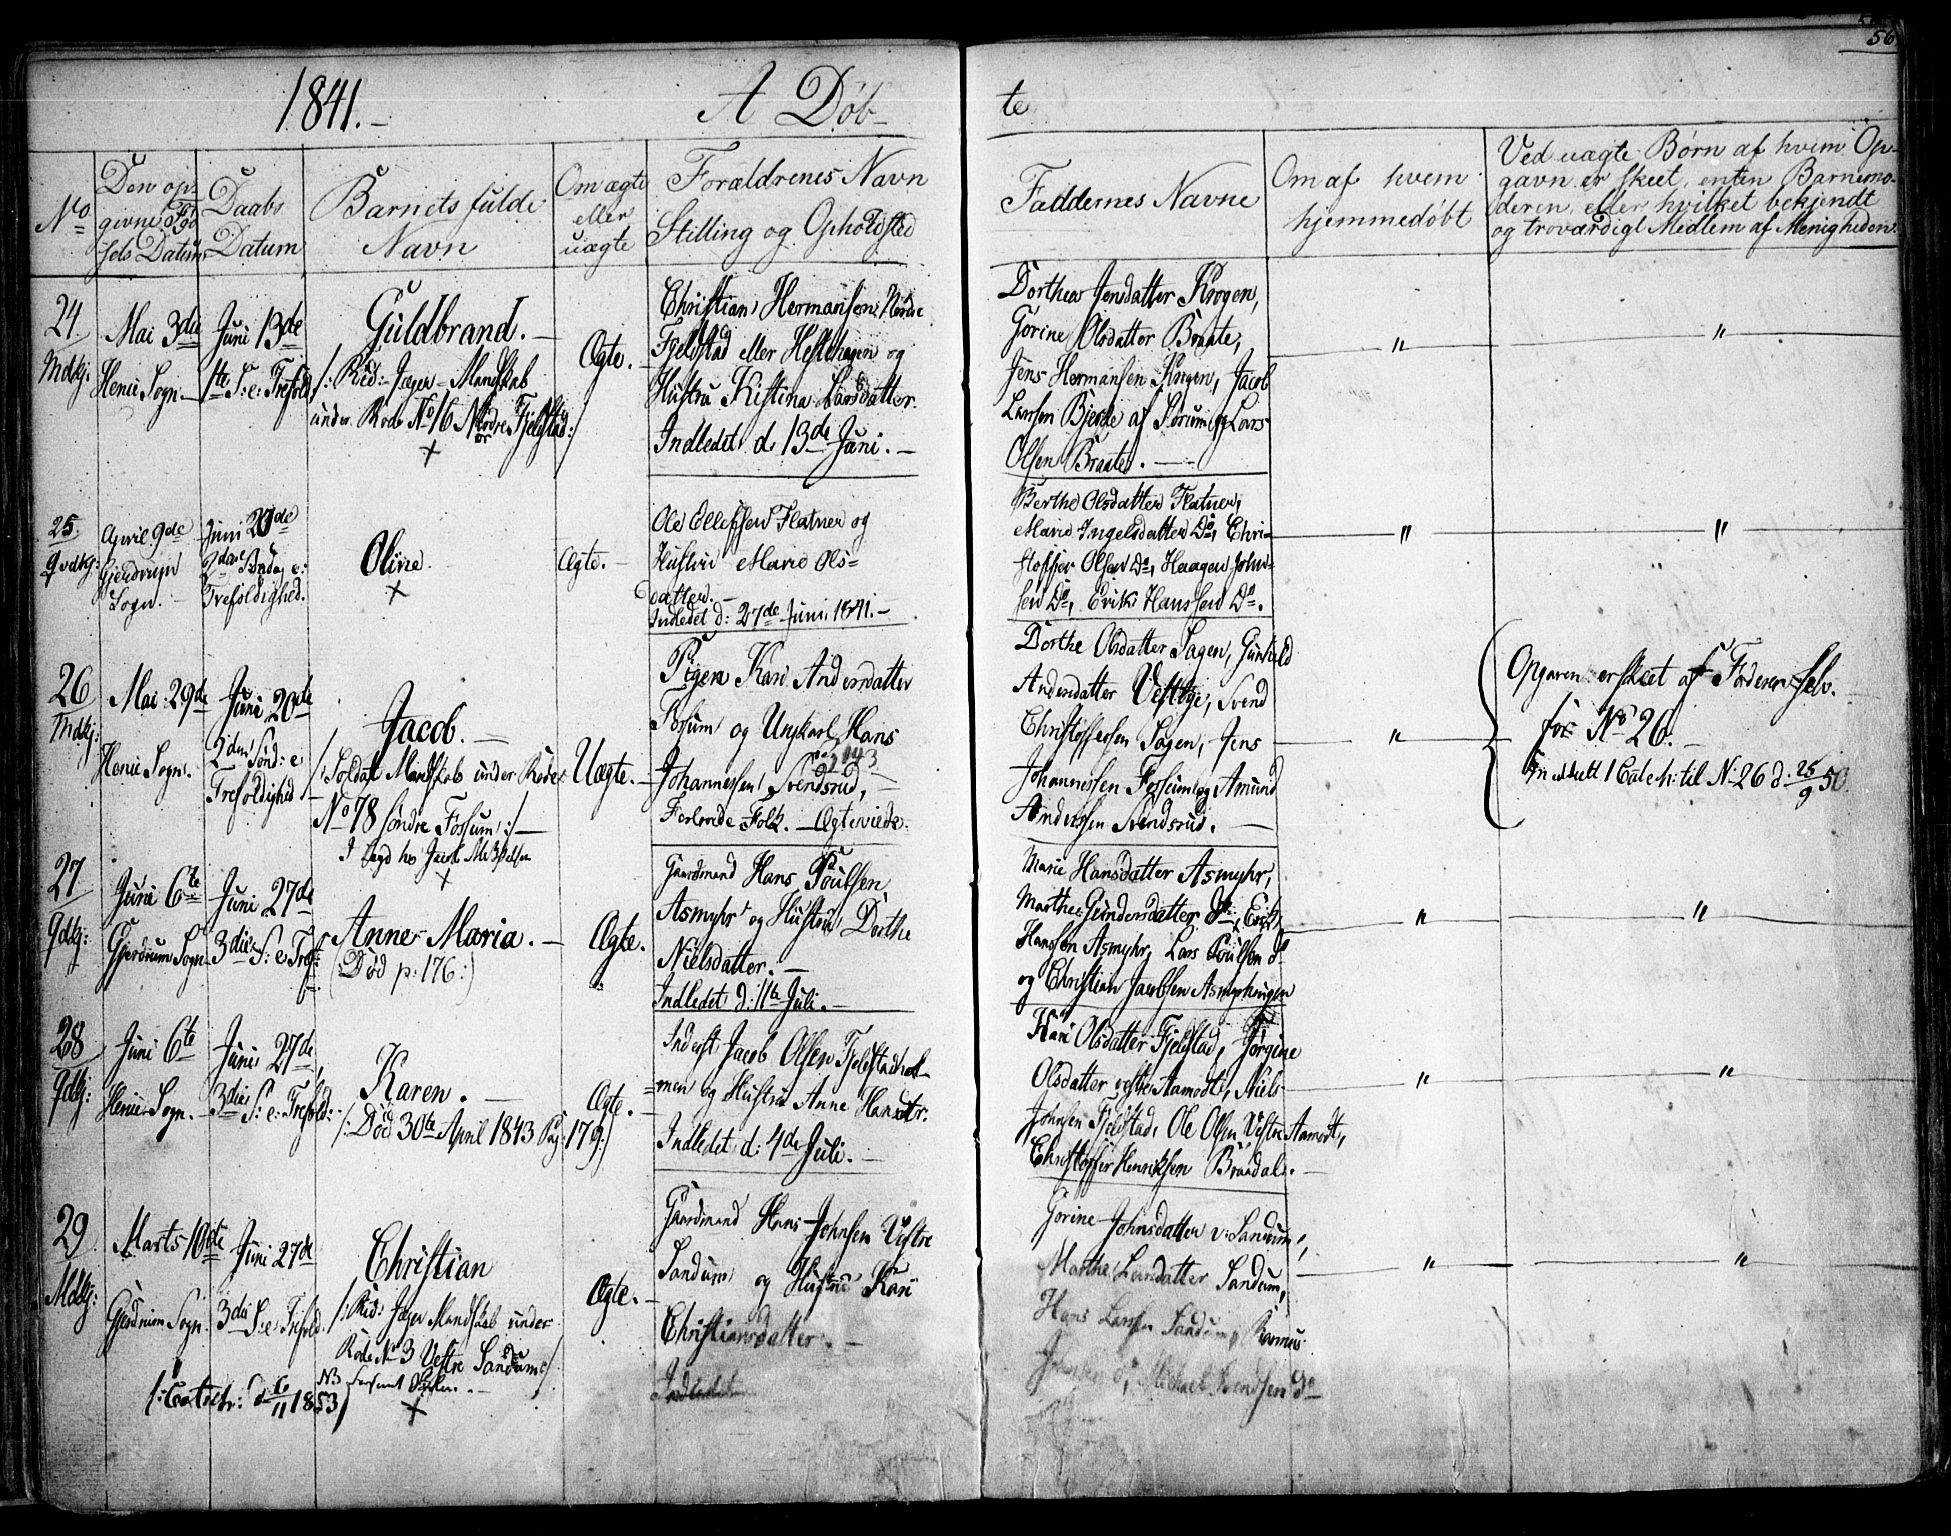 56
1841.–
A Døb–
te
No
Den op-
givne Fød-
sels Datum
Daabs
Datum
Barnets fulde
Navn
Om ægte
eller
uægte
Forældrenes Navn
Stilling og Opholdsted
Faddernes Navne
Om af hvem
hjemmedøbt
Ved uægte Børn af hvem Op-
gavn er skeet, enten Barnemo-
deren, eller hvilket bekjendt
og troværdigt Medlem af Menigheden.
24
Mdkj:
Mai 3die
Henie Sogn.
Juni 13de
1te S: e: Trefold
Guldbrand.–
/: Rid: Jæger-Mandskab
under Rode No 16 Nordre Fjelstad:/
+
Ægte.
Christian Hermansen Nordre
Fjeldstad eller Heslehagen og
Hustru Kistina Larsdatter.
Indledet d. 13de Juni.–
Dorthea Jensdatter Krogen,
Gorine Olsdatter Braate,
Jens Hermansen Krogen, Jacob
Larssen Bjerke af Sørum og Lars
Olsen Braate.–
"
"
25.
Qvdkj:
April 9de
Gjerdrum
Sogn.–
Juni 20de
2den Søndag e:
Trefoldighed.
Oline.
+
Ægte.–
Ole Ellefsen Flatner og
Hustru Marie Ols=
datter.–
Indledet d: 27de Juni 1841.–
Berthe Olsdatter Flatner,
Marie Ingelsdatter Do, Chri-
stoffer Olsen Do, Haagen John-
sen Do, Erik Hanssen Do.
"
"
26
Mdkj:
Mai 29de
Henie Sogn.
Juni 20de
2den Sønd: e
Trefoldighed
Jacob.–
/: Soldat Mandskab under Rode
No 78 søndre Fossum:/–
+
Uægte.–
Pigen Kari Andersdatter
Fossum og Ungkarl Hans
Johannessen Svendsrud,
Forlovede Folk.– Ægteviede.
Dorthe Olsdatter Sagen, Gunhild
Andersdatter Vestbye, Svend
Christoffersen Sagen, Jens
Johannessen Fossum og Amund
Anderssen Svendsrud.–
"
Opgaven er skeet af Faderen selv.
for No 26.–
Indsatt 1 Catech: til No 26 d. 25/9 50.
27
Qdkj:
Juni 6te
Gjerdrum Sogn
Juni 27de
3die S: e Tref:
Anne Maria.–
(Død p: 176:)
Ægte.
Gaardmand Hans Poulsen
Asmyhr og Hustru Dorthe
Nielsdatter.–
Indledet d: 11te Juli.–
Marie Hansdatter Asmyhr,
Marthe Gundersdatter Do, Erik
Hanssen Asmyhr, Lars Poulsen do
og Christian Jacobsen Asmyhrengen
"
"
28
Qdkj:
Juni 6te
Henie Sogn.
Juni 27de,
3die S: e: Trefold:
Karen.–
/: Død 30te April 1843 Pag: 179:/
Ægte.
Inderst Jacob Olsen Fjelstadhol-
=men og Hustru Anne Hansdtr.
Indledet d: 4de Juli.–
Kari Olsdatter Fjelstad, Jørgine
Olsdatter vestre Aamodt, Niels
Johnsen Fjelstad, Ole Olsen Vestre Aamodt,
Christoffer Henriksen Braadal.–
"
"
29
Mdkj:
Marts 10de
Gjerdrum Sogn.
Juni 27de
3die S: e Trefold:
Christian
/: Rid: Jæger Mandskab under
Rode No 3 Vestre Sandum:/
/: Catech: d 6/11 1853/
+
Ægte.–
Gaardmand Hans Johnsen Vestre
Sandum og Hustru Kari
Christiansdatter.–
Indledet
Gorine Johnsdatter v: Sandum,
Marthe Larsdatter Sandum,
Hans Larssen Sandum, Rasmus
Michael Svendsen do
"
"